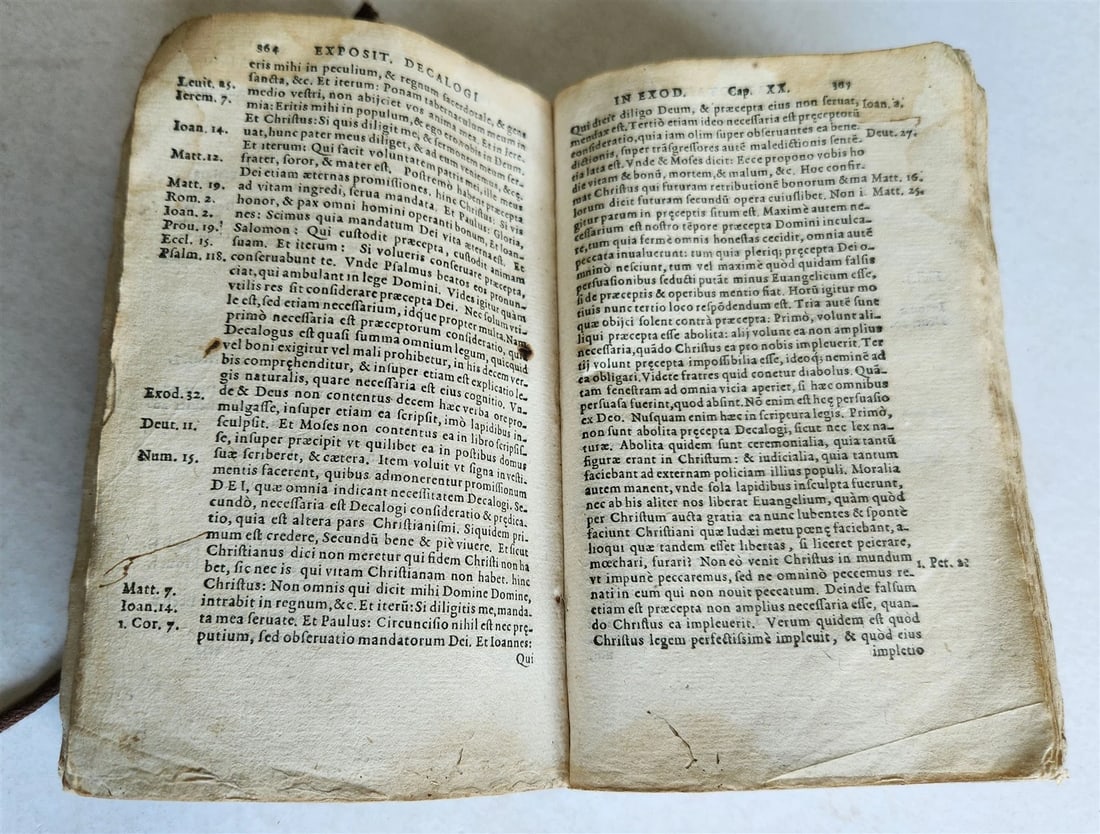 364 EXPOSIT. DECALOGI
eris mihi in peculium, & regnum sacerdotale, & gens
Leuit. 25. sancta, &c. Et iterum: Ponam tabernaculum meum in
Ierem. 7. medio vestri, non abijciet vos anima mea. Et in Iere-
mia: Eritis mihi in populum, & ego ero vobis in Deum.
Ioan. 14. Et Christus: Si quis diligit me, & sermonem meum ser-
uat, hunc pater meus diliget, & ad eum veniemus, &c.
Matt. 12. Et iterum: Qui facit voluntatem patris mei, ille meus
frater, soror, & mater est. Postremò habent præcepta
Dei etiam æternas promissiones, hinc Christus: Si vis
Matt. 19. ad vitam ingredi, serua mandata. Et Paulus: Gloria,
Rom. 2. honor, & pax omni homini operanti bonum, Et Ioan-
Ioan. 2. nes: Scimus quia mandatum Dei vita æterna est. Et
Prou. 19. Salomon: Qui custodit præcepta, custodit animam
Eccl. 15. suam. Et iterum: Si volueris conseruare præcepta,
Psalm. 118. conseruabunt te. Vnde Psalmus beatos eos pronun-
ciat, qui ambulant in lege Domini. Vides igitur quàm
vtilis res sit considerare præcepta Dei. Nec solum vti-
le est, sed etiam necessarium, idque propter multa. Nam
primò necessaria est præceptorum consideratio, quia
Decalogus est quasi summa omnium legum, quicquid
vel boni exigitur vel mali prohibetur, in his decem ver-
bis comprehenditur, & insuper etiam est explicatio le-
gis naturalis, quare necessaria est eius cognitio. Vn-
Exod. 32. de & Deus non contentus decem hæc verba ore pro-
mulgasse, insuper etiam ea scripsit, imò lapidibus in-
Deut. 11. sculpsit. Et Moses non contentus ea in libro scripsis-
se, insuper præcipit vt quilibet ea in postibus domus
suæ scriberet, & cætera. Item voluit vt signa in vesti-
Num. 15. mentis facerent, quibus admonerentur promissionum
DEI, quæ omnia indicant necessitatem Decalogi. Se-
cundò, necessaria est Decalogi consideratio & prędica-
tio, quia est altera pars Christianismi. Siquidem pri-
mum est credere, Secundū bene & piè viuere. Et sicut
Christianus dici non meretur qui fidem Christi non ha
bet, sic nec is qui vitam Christianam non habet. hinc
Matt. 7. Christus: Non omnis qui dicit mihi Domine Domine,
Ioan. 14. intrabit in regnum, &c. Et iterū: Si diligitis me, manda-
1. Cor. 7. ta mea seruate. Et Paulus: Circuncisio nihil est nec pręputium,
putium, sed obseruatio mandatorum Dei. Et Ioannes:
Qui
IN EXOD. Cap. XX. 365
Qui dicit diligo Deum, & præcepta eius non seruat, Ioan. 2.
mendax est. Tertiò etiam ideo necessaria est pręceptorū
consideratio, quia iam olim super obseruantes ea bene- Deut. 27.
dictionis, super trāsgressores autē maledictionis sentē-
tia lata est. Vnde & Moses dicit: Ecce propono vobis ho
die vitam & bonū, mortem, & malum, &c. Hoc confir-
mat Christus qui futuram retributionē bonorum & ma Matt. 16.
lorum dicit futuram secundū opera cuiuslibet. Non i Matt. 25.
gitur parum in pręceptis situm est. Maximè autem ne-
cessarium est nostro tēpore præcepta Domini inculca-
re, tum quia fermè omnis honestas cecidit, omnia autē
peccata inualuerunt: tum quia pleriq; pręcepta Dei o-
mninò nesciunt, tum vel maximè quòd quidam falsis
persuasionibus seducti putāt minus Euangelicum esse,
si de præceptis & operibus mentio fiat. Horū igitur mo
tiuis nunc tertio loco respōdendum est. Tria autē sunt
quæ obijci solent contrà præcepta: Primò, volunt ali-
liqui præcepta esse abolita: alij volunt ea non amplius
necessaria, quādo Christus ea pro nobis impleuerit. Ter
tij volunt pręcepta impossibilia esse, ideoq; neminē ad
ea obligari. Videte fratres quid conetur diabolus. Quā-
tam fenestram ad omnia vicia aperiet, si hæc omnibus
persuasa fuerint, quod absint. Nō enim est hęc persuasio
ex Deo. Nusquam enim hæc in scriptura legis. Primò,
non sunt abolita pręcepta Decalogi, sicut nec lex na-
turæ. Abolita quidem sunt ceremonialia, quia tantū
figuræ erant in Christum: & iudicialia, quia tantum
faciebant ad externam policiam illius populi. Moralia
autem manent, vnde sola lapidibus insculpta fuerunt,
nec ab his aliter nos liberat Euangelium, quàm quòd
per Christum aucta gratia ea nunc lubentes & spontè
faciunt Christiani quæ Iudæi metu pœnę faciebant, a-
lioqui quæ tandem esset libertas, si liceret peierare,
mœchari, furari? Non eò venit Christus in mundum
vt impunè peccaremus, sed ne omninò peccemus re- 1. Pet. 2.
nati in eum qui non nouit peccatum. Deinde falsum
etiam est præcepta non amplius necessaria esse, quan-
do Christus ea impleuerit. Verum quidem est quòd
Christus legem perfectissimè impleuit, & quòd eius
impletio